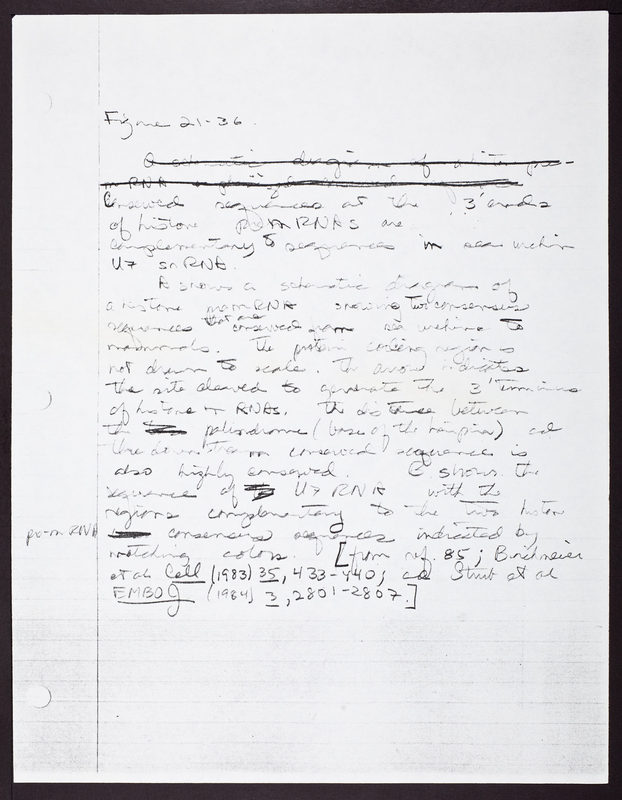 Figure 21-36.
A schematic diagram of a histone pre-
mRNA
Conserved sequences at the 3' ends
of histone pre mRNAs are
complementary to sequences in sea urchin
U7 snRNA.
A shows a schematic diagram of
a histone mRNA showing two consensus
sequences that are conserved from sea urchins to
mammals. The protein coding region is
not drawn to scale. The arrow indicates
the site cleaved to generate the 3' terminus
of histone RNAs. The distance between
the palindrome (base of the hairpin) and
the downstream conserved sequence is
also highly conserved. shows the
sequence of U7 RNA with the
regions complementary to the two histone
pre-mRNA consensus sequences indicated by
matching colors. [from ref. 85; Birchmeier
et al. Cell (1983) 35, 433-440; and Strub et al
EMBO J (1984) 3, 2801-2807.]